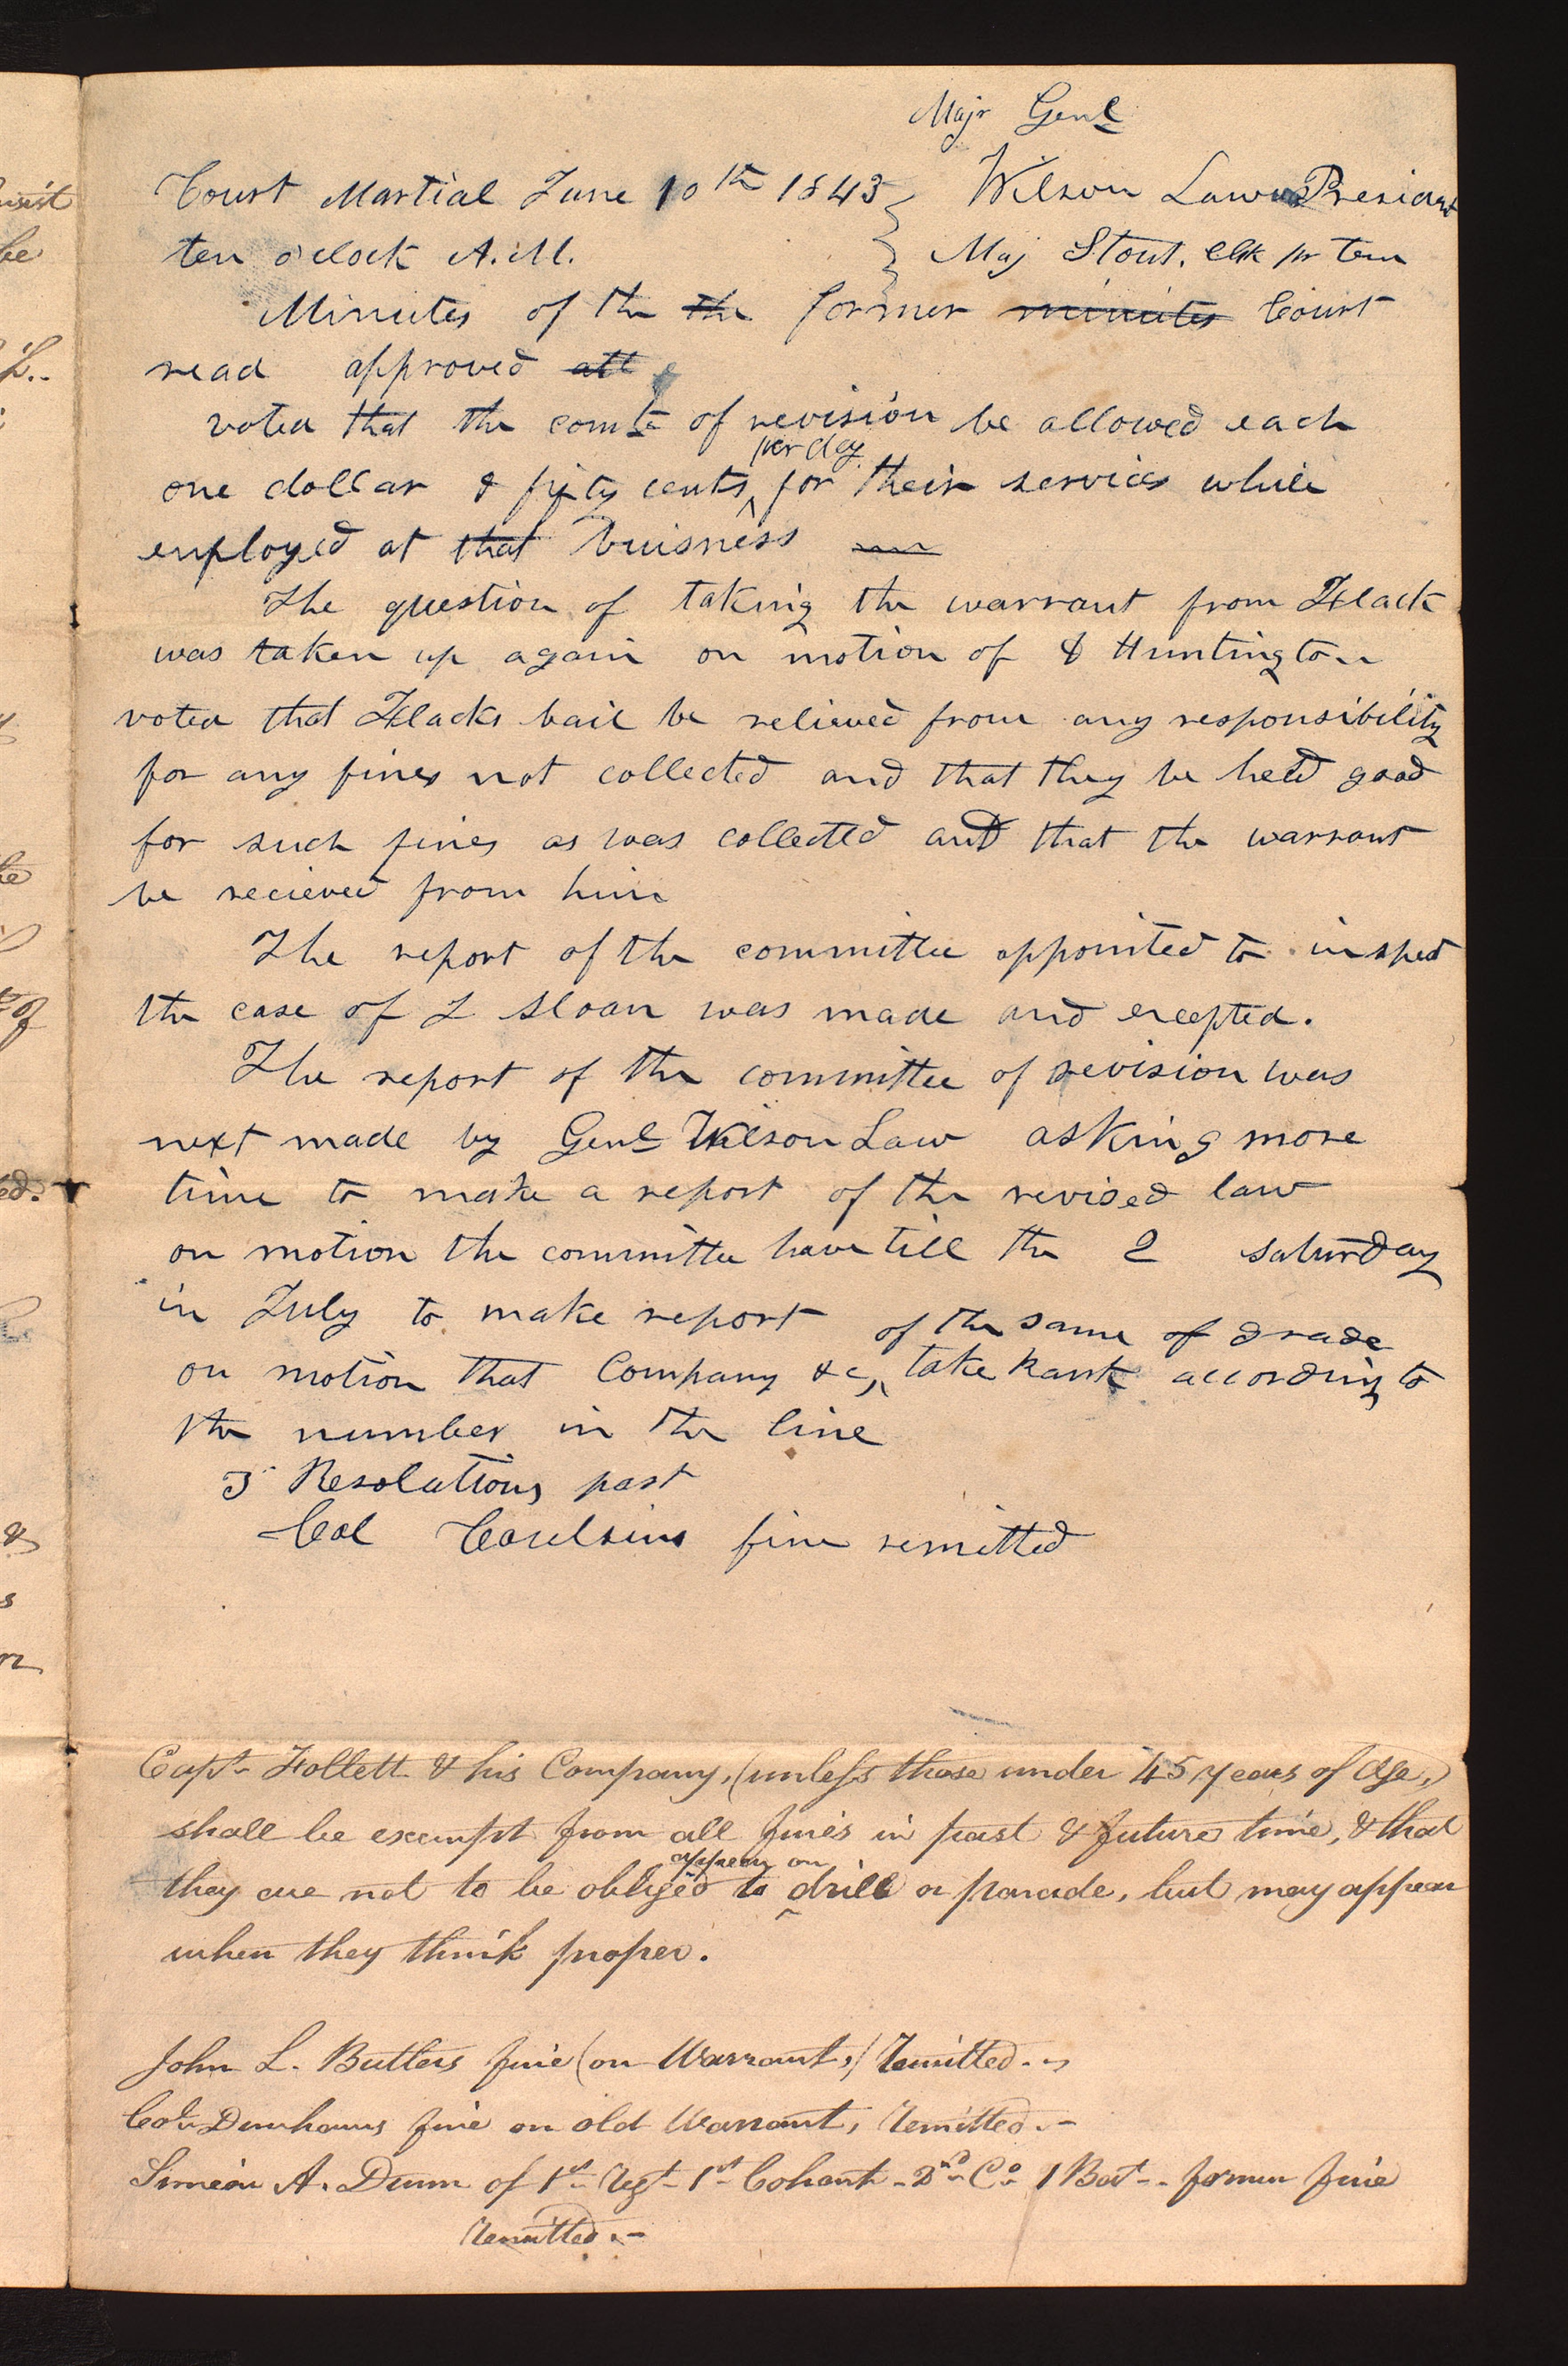 Majr Genl
Court Martial June 10th 1843 } Wilson Law President
ten o'clock A.M. } Maj Stout, Clk pr tem
Minutes of the the former minutes Court
read approved att
voted that the comte of revision be allowed each
one dollar & fifty cents per day for their services while
employed at that buisness
The question of taking the warrant from Flack
was taken up again on motion of & Huntington
voted that Flacks bail be relieved from any responsibility
for any fines not collected and that they be held good
for such fines as was collected and that the warrant
be recieved from him
The report of the committee appointed to inspect
the case of J Sloan was made and excepted.
The report of the committee of revision was
next made by Genl Wilson Law asking more
time to make a report of the revised law
on motion the committee have till the 2 saturday
in July to make report
on motion that Company &c, of the same of grade take Rank according to
the number in the line
3 Resolutions past
Col fine remitted
Capt. Follett & his Company, (unless those under 45 years of Age,)
shall be exempt from all fines in past & future time, & that
they are not to be obliged to appear on drill or parade, but may appear
when they think proper.
John L. Butlers fine (on Warrant,) Remitted.
Col. Dunhams fine on old Warrant, Remitted.
Simeon A. Dunn of 1st Regt 1st Cohort 2nd Co 1 Bat. former fine
Remitted.